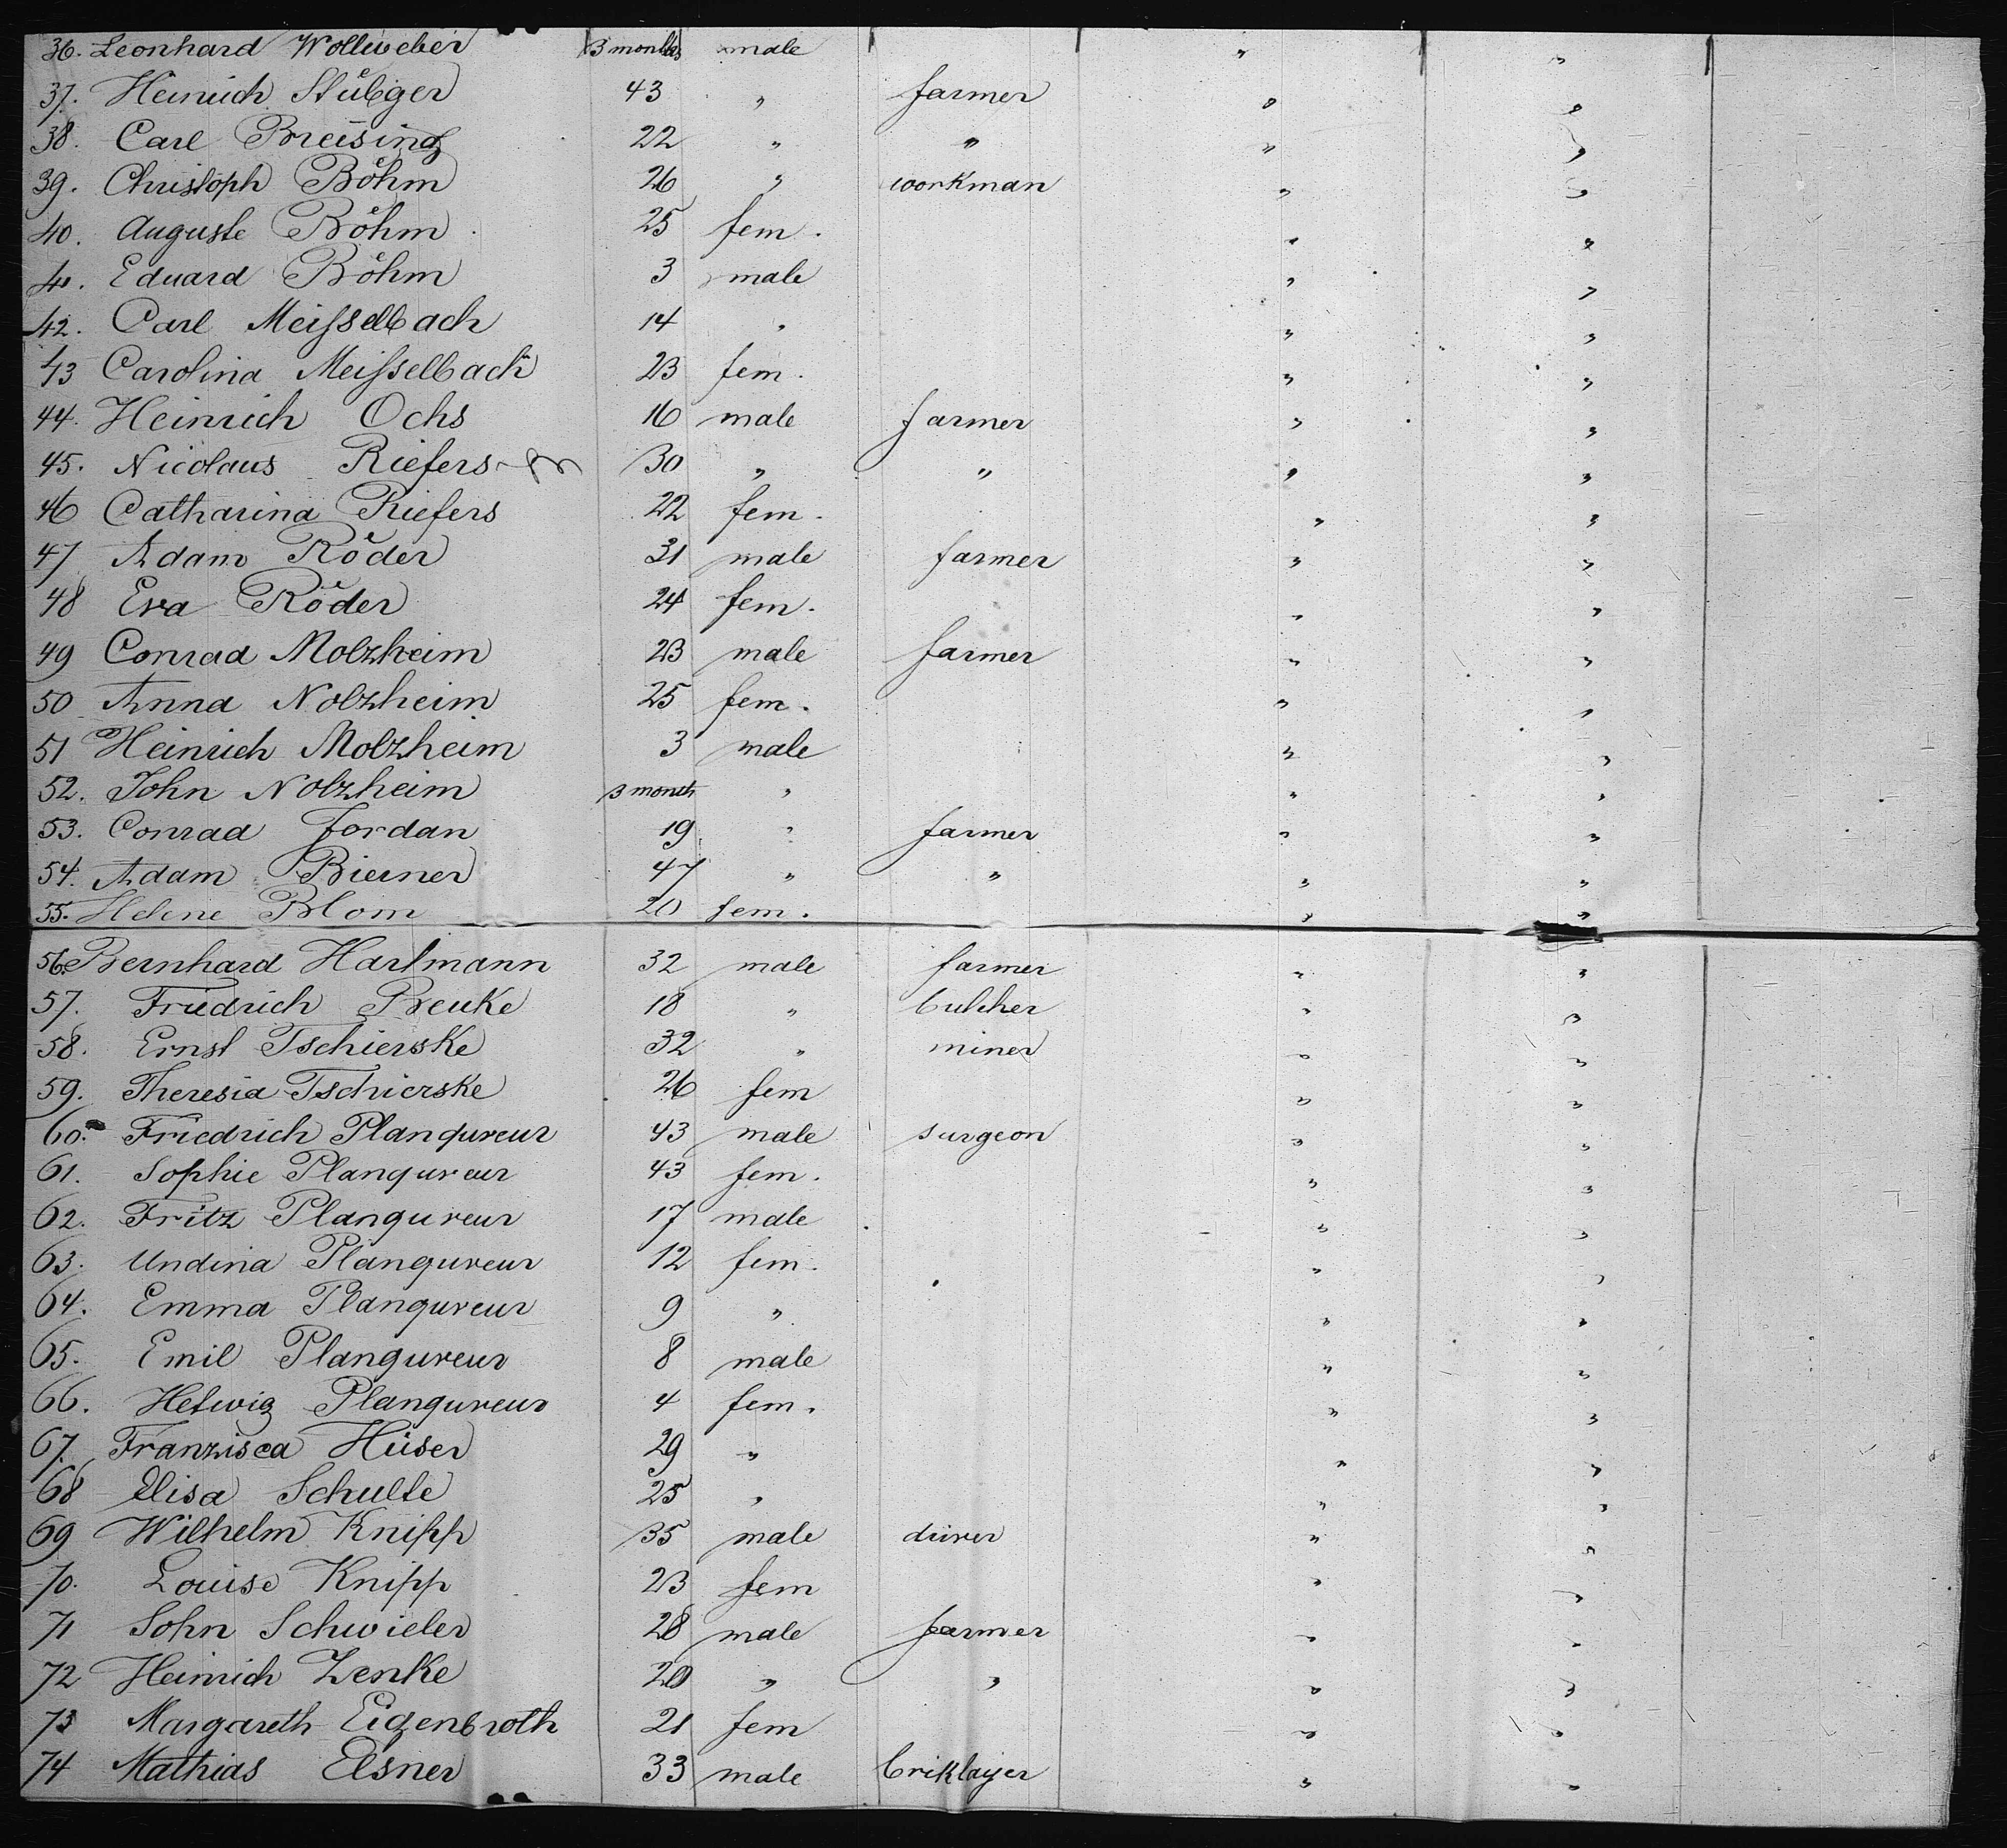 36. Leonhard Wollweber 3 months male " "
37. Heinrich Stübger 43 " farmer " "
38. Carl Breising 22 " " " "
39. Christoph Böhm 26 " workman " "
40. Auguste Böhm 25 fem. " "
41. Eduard Böhm 3 male " "
42. Carl Meisselbach 14 " " "
43 Carolina Meisselbach 23 fem. " "
44. Heinrich Ochs 16 male farmer " "
45. Nicolaus Riefers 30 " " " "
46 Catharina Riefers 22 fem. " "
47 Adam Röder 31 male farmer " "
48 Eva Röder 24 fem. " "
49 Conrad Molzheim 23 male farmer " "
50 Anna Nolzheim 25 fem. " "
51 Heinrich Molzheim 3 male " "
52. John Nolzheim 3 month " " "
53. Conrad Jordan 19 " farmer " "
54. Adam Bierner 47 " " " "
55. Helene Blom 20 fem. " "
56. Bernhard Hartmann 32 male farmer " "
57. Friedrich Breuke 18 " butcher " "
58. Ernst Tschierske 32 " miner " "
59. Theresia Tschierske 26 fem " "
60. Friedrich Planqureur 43 male surgeon " "
61. Sophie Planqureur 43 fem. " "
62. Fritz Planqureur 17 male " "
63. Undina Planqureur 12 fem. " "
64. Emma Planqureur 9 " " "
65. Emil Planqureur 8 male " "
66. Hetwig Planqureur 4 fem. " "
67. Franzisca Hüser 29 " " "
68 Elisa Schulte 25 " " "
69 Wilhelm Knipp 35 male driver " "
70. Louise Knipp 23 fem " "
71 John Schwieler 28 male farmer " "
72 Heinrich Zenke 20 " " " "
73 Margareth Eigenbroth 21 fem " "
74 Mathias Elsner 33 male briklayer " "